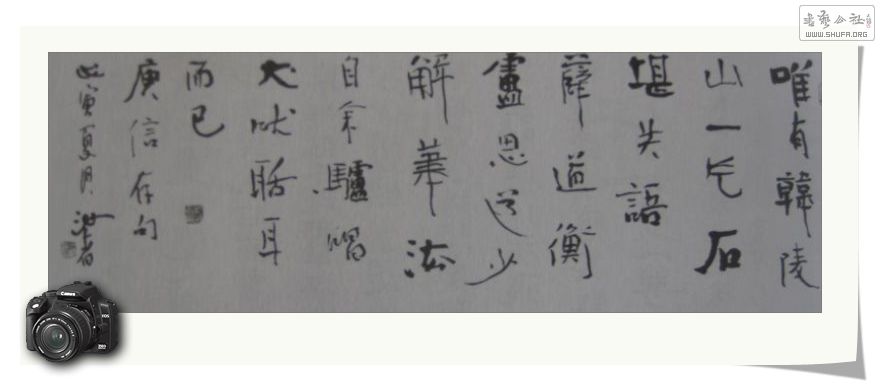 唯有韓陵
山一片石
堪共語
薛道衡
盧思道少
解筆法
自余驢鳴
犬吠聒耳
而已
庾信存句
寅夏月
書藝公社
WWW.SHUFA.ORG
Canon
EOS